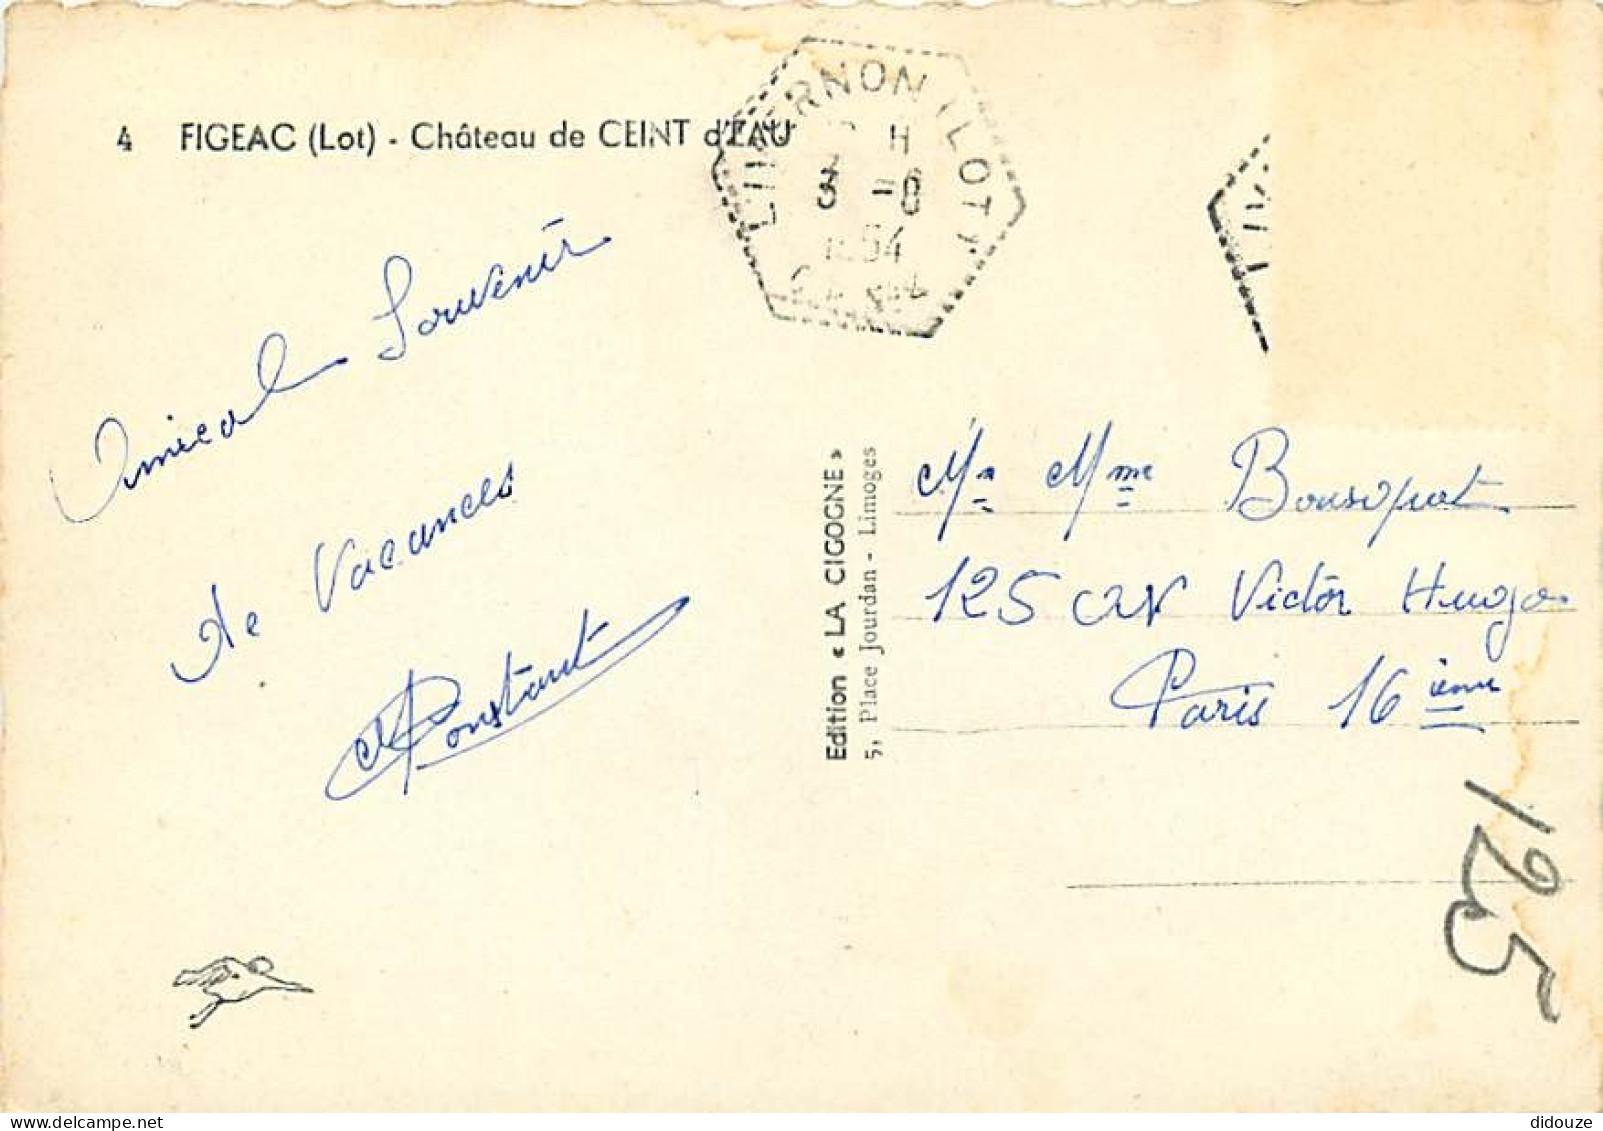 4 FIGEAC (Lot) - Château de CEINT d'EAU
LIVERNON (LOT)
H
3 -8
1954
Amical Souvenir
de Vacances
Constant
Edition « LA CIGOGNE »
5, Place Jourdan - Limoges
Mr Mme
125 av Victor Hugo
Paris 16 ième
125
didouze